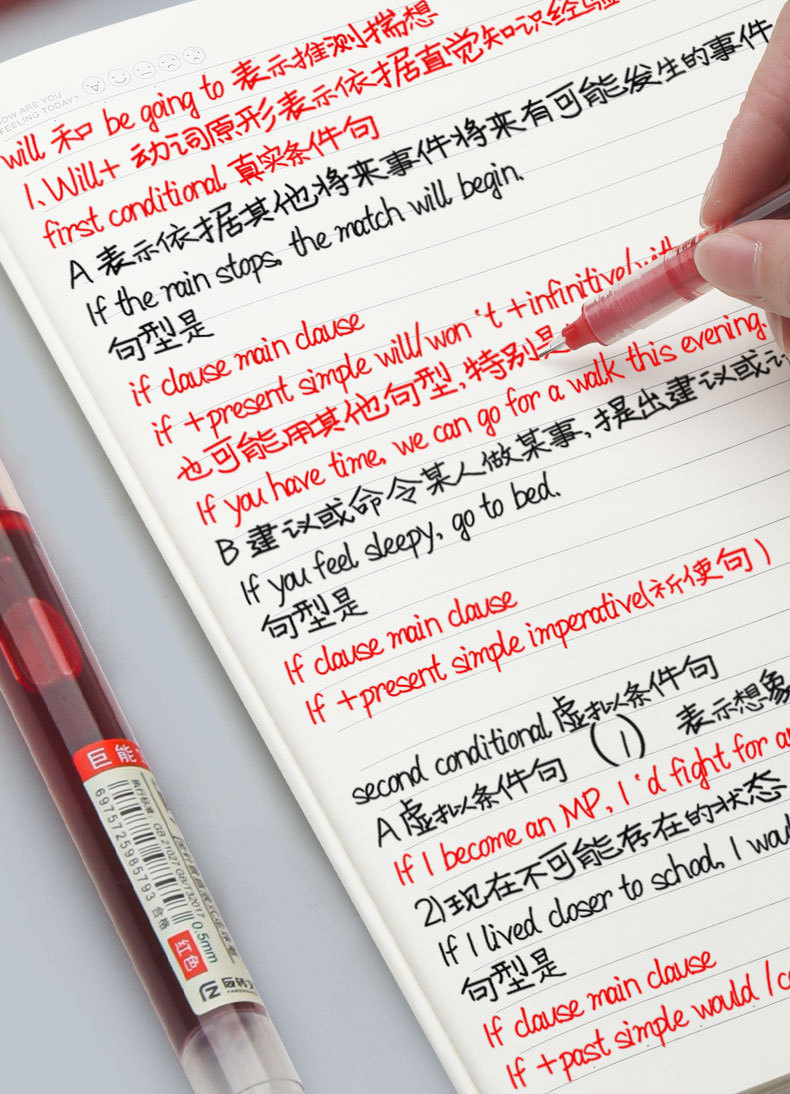 HOW ARE YOU
FEELING TODAY?
will 和 be going to 表示推测揣想
1、Will+ 动词原形表示依据直觉知识经验
first conditional 真实条件句
A 表示依据其他将来事件将来有可能发生的事件
If the rain stops, the match will begin.
句型是
if clause main clause
if +present simple will/won't +infinitive/
也可能用其他句型,特别是
If you have time, we can go for a walk this evening.
B 建议或命令某人做某事,提出建议或
If you feel sleepy, go to bed.
句型是
If clause main clause
If +present simple imperative(祈使句)
second conditional 虚拟条件句
A 虚拟条件句 (1) 表示想象
If I become an MP, I'd fight for
2)现在不可能存在的状态
If I lived closer to school, I would
句型是
If clause main clause
If +past simple would /
巨能
执行标准: GB 21027 GB/T32017
6975725985793 合格
0.5mm
红色